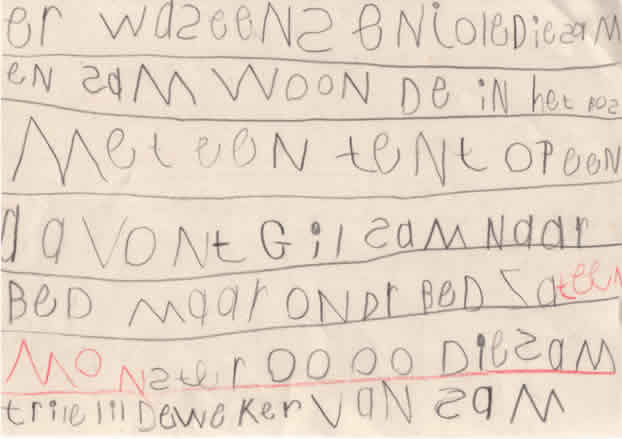 er waseens eNioleDiesam
eN sam WOON De iN het bos
Met eeN teNt OPeeN
davoNt Gil sam Naar
BeD maar ONDr BeD Zat eeN
MoNster OOOO Diesam
trile lil DeweKer VaN sam